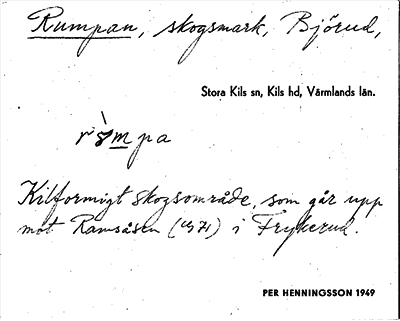 Rumpan, skogsmark, Björud,
Stora Kils sn, Kils hd, Värmlands län.
Kilformigt skogsområde, som går upp
mot Ramsåsen ( ) i Frykerud.
PER HENNINGSSON 1949